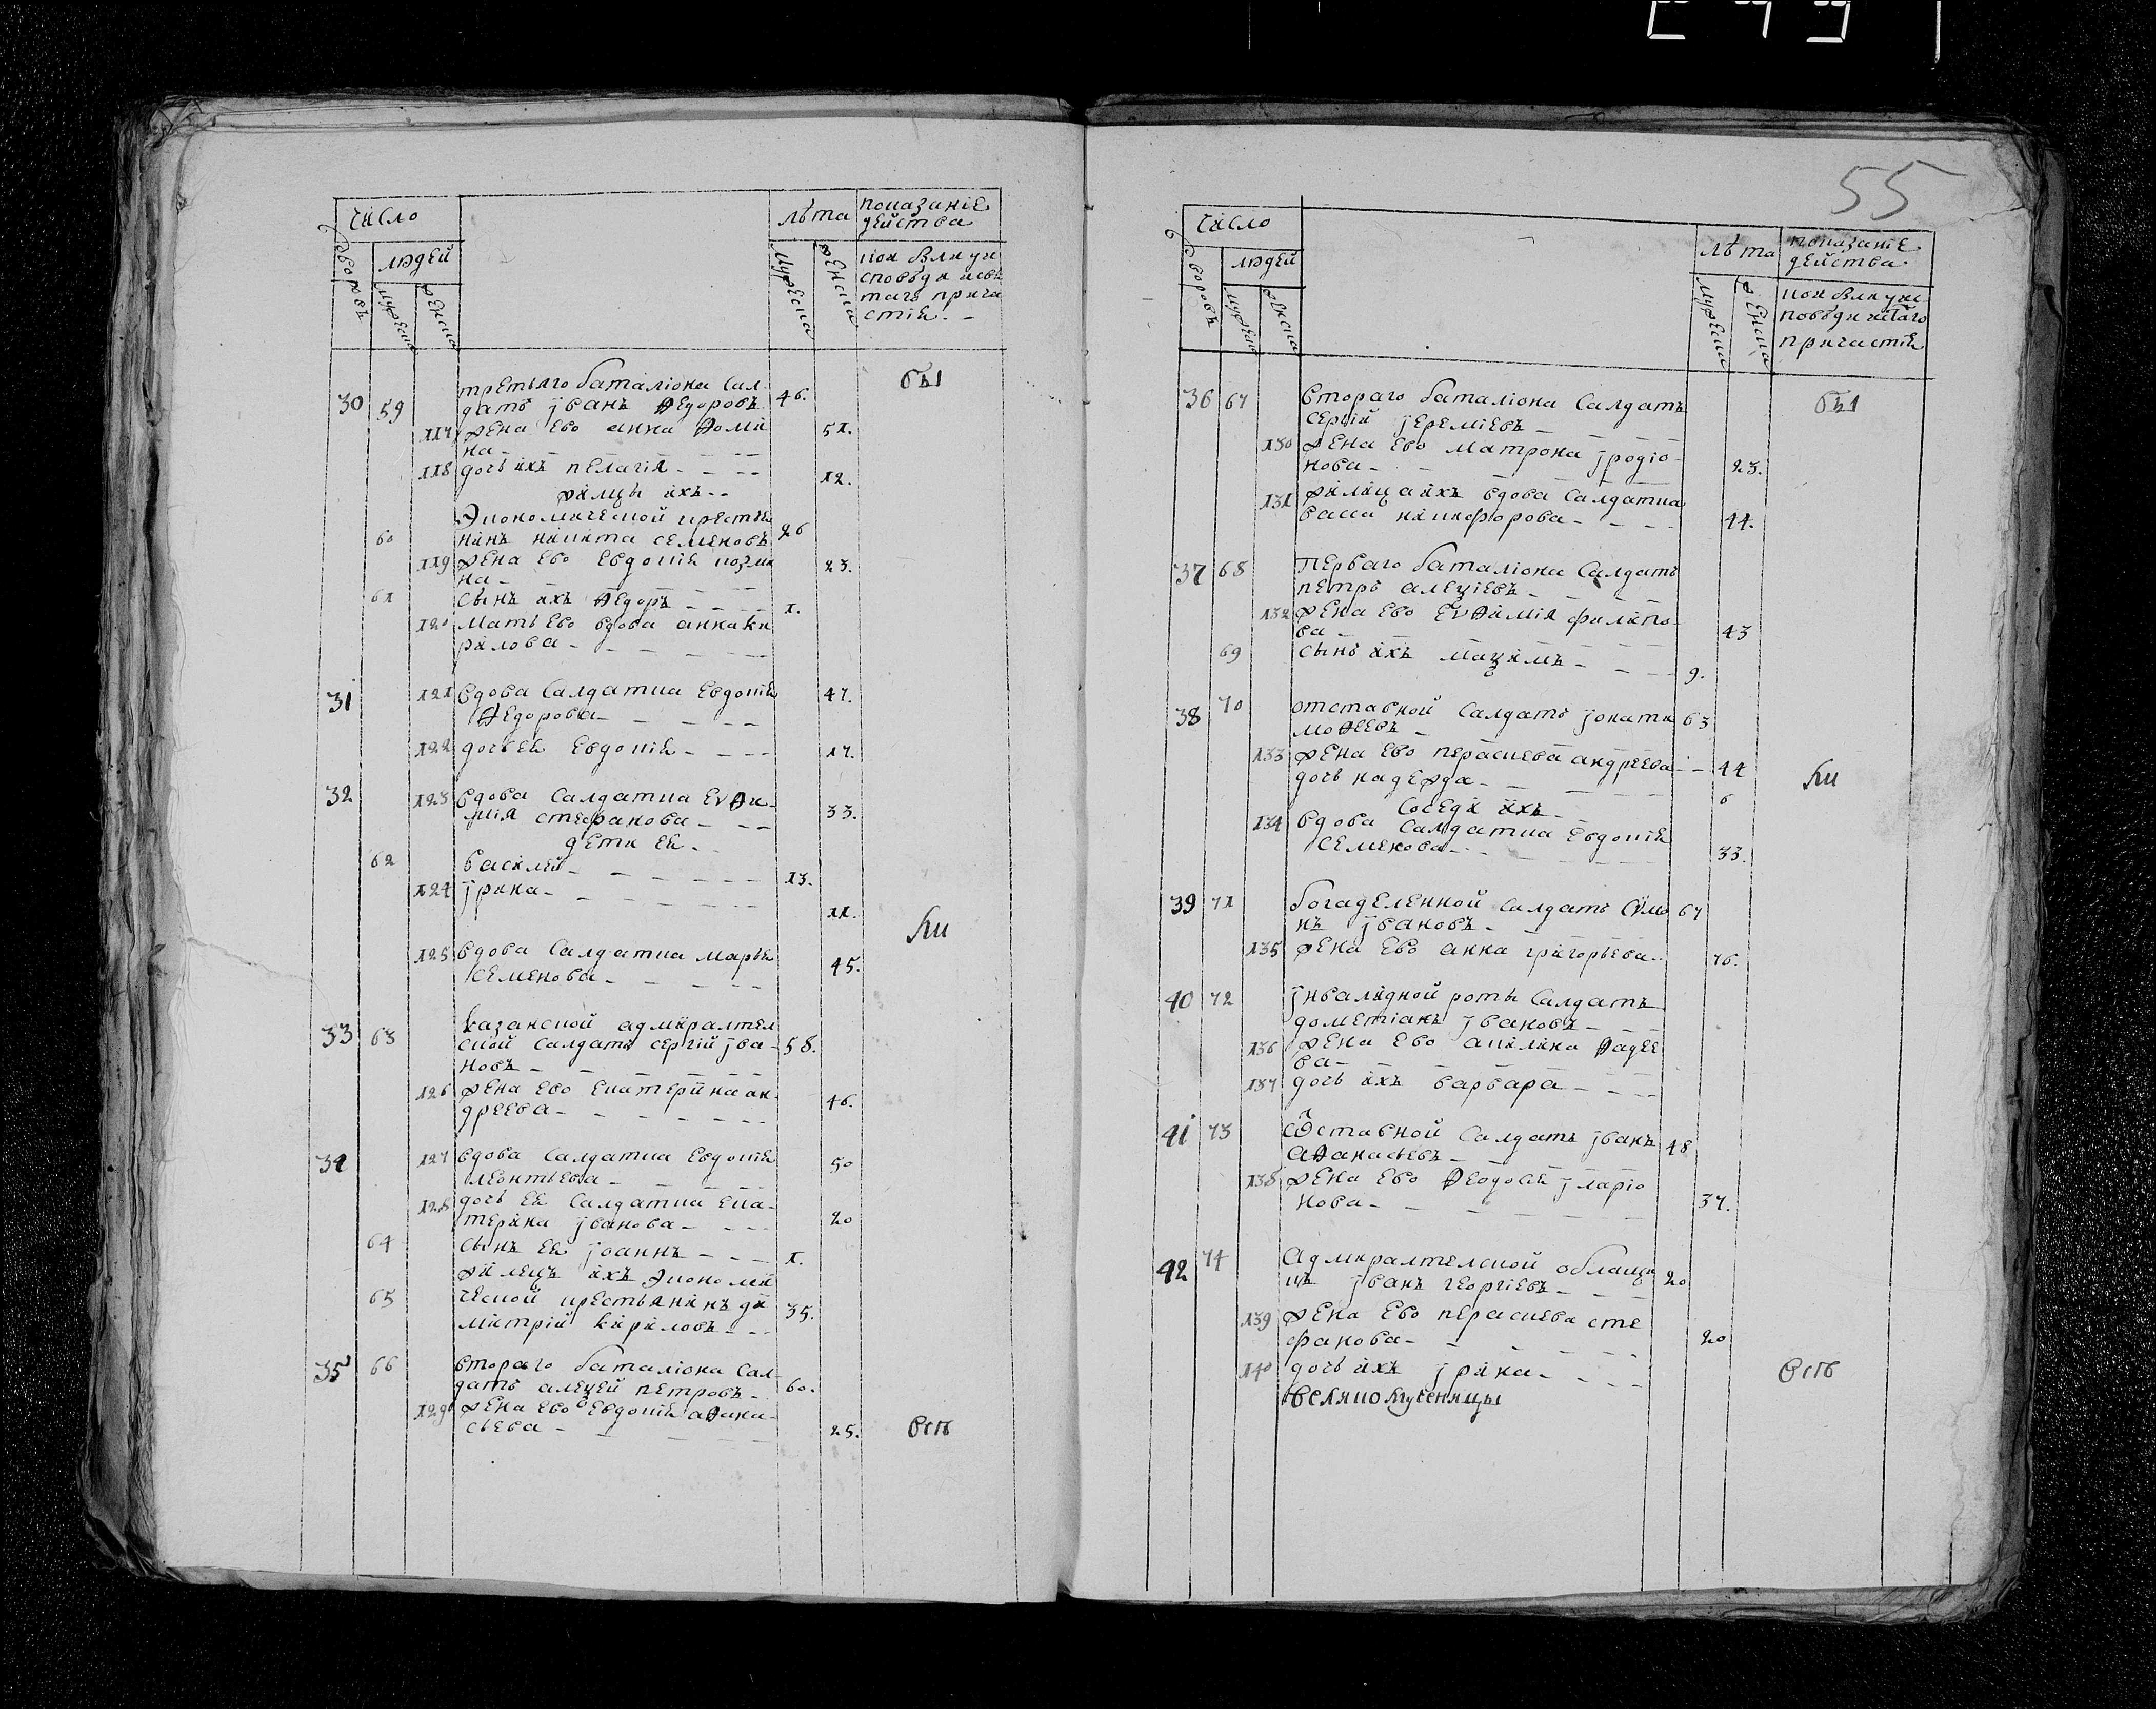 число
лѣта
показанiе
действа
дворовъ
людей
мужеска
женска
мужеска
женска
кои были у ис
споведи и свя
таго прича
стiя. -
30 59 третьяго баталiона сал- бы
датъ iванъ Ѳедоровъ 46.
117 жена ево анна Ѳоми 51.
на -
118 дочь ихъ пелагiя - 12.
жилцы ихъ - -
Экономической крестья
60 нинъ никита семеновъ 26
119 жена ево евдокiя козми 23.
на -
61 сынъ ихъ Ѳедоръ - 1.
120 мать ево вдова анна ки
рилова -
31 121 вдова салдатка евдокiя 47.
Ѳедорова -
122 дочь ея евдокiя - 17.
32 123 вдова салдатка еѵѲи- 33.
мiя стефанова -
дети ея -
62 василей - 13.
124 iрина - 11.
ли
125 вдова салдатка марья 45.
семенова -
казанской адмиралтей
33 63 ской салдатъ сергiй iва- 58.
новъ -
126 жена ево екатерина ан- 46.
дреева -
34 127 вдова салдатка евдокiя 50
леонтьева -
128 дочь ея салдатка ека-
терина iванова - 20
64 сынъ ея iоаннъ - 1.
жилецъ ихъ экономи
65 ческой крестьянинъ ди 35.
митрiй кириловъ -
35 66 втораго баталiона сал-
датъ алеѯей петровъ - 60.
129 жена ево евдокiя аѲана-
сьева - 25. всѣ
55
число
лѣта
показанiе
действа
дворовъ
людей
мужеска
женска
мужеска
женска
кои были у ис
поведи и с᷃таго
причастiя
36 67 втораго баталiона салдатъ бы
сергiй iеремiевъ -
130 жена ево матрона iродiо-
нова - 23.
131 жилица ихъ вдова салдатка
васса никифорова - 44.
37 68 перваго баталiона салдатъ
петръ алеѯiевъ -
132 жена ево еѵѲимiя филипо-
ва - 43
69 сынъ ихъ маѯимъ - 9.
38 70 отставной салдатъ iона ти 63
моѲеевъ -
133 жена ево пераскева андреева - 44
дочь надежда - 6
ли
соседи ихъ -
134 вдова салдатка евдокiя
семенова - 33.
39 71 богаделенной салдатъ сѵмо 67
нъ iвановъ -
135 жена ево анна григорьева - 76.
40 72 iнвалидной роты салдатъ
дометiанъ iвановъ -
136 жена ево акилина Ѳадее
ва -
137 дочь ихъ варвара -
41 73 ѿставной салдатъ iванъ 48
аѲанасьевъ -
138 жена ево Ѳеодосiя iларiо
нова - 37.
42 74 адмиралтейской облащи
къ iванъ георгiевъ - 20
139 жена ево пераскева сте
фанова - 20
140 дочь ихъ iрина - всѣ
великомученицы